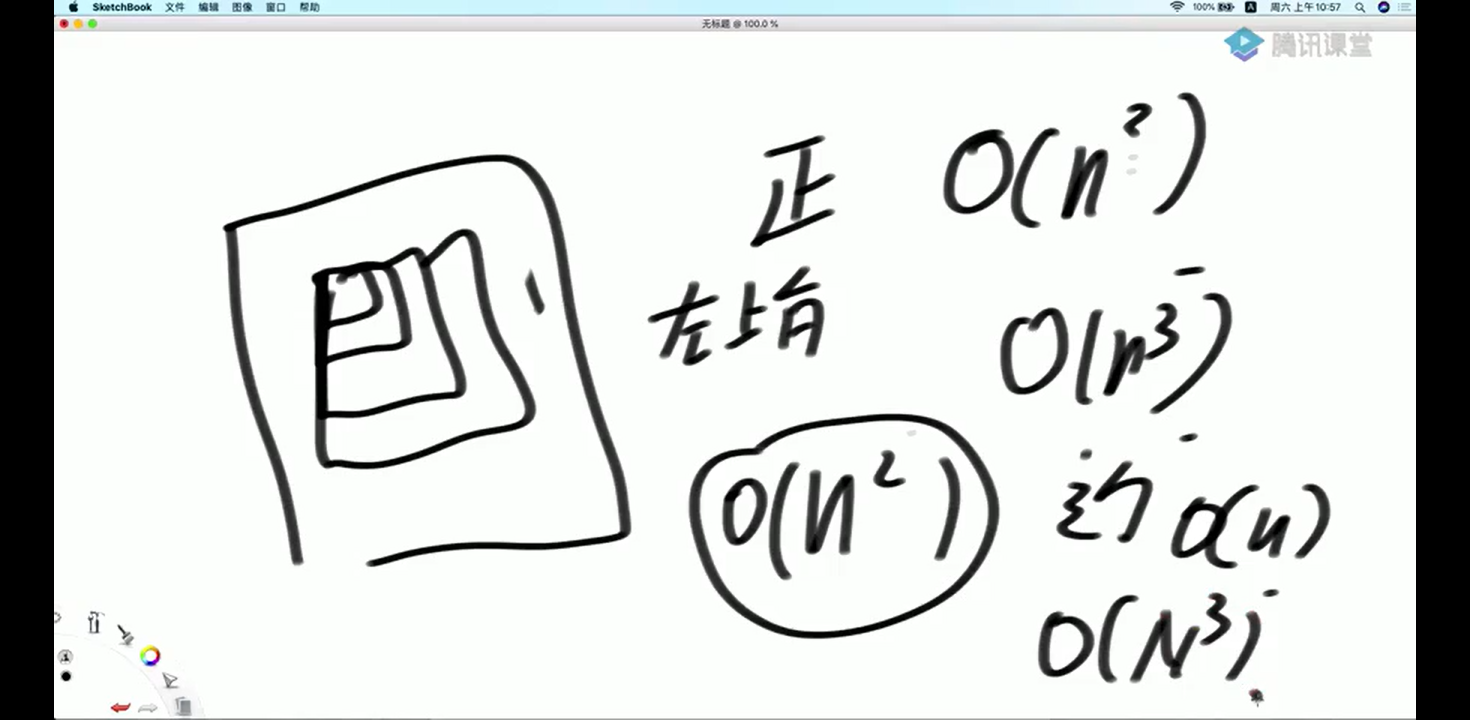 SketchBook 文件 编辑 图像 窗口 帮助 100% 周六 上午10:57
无标题 @ 100.0 %
腾讯课堂
正 O(n²)
左上角 O(n³)
O(n²) 边 O(n)
O(N³)